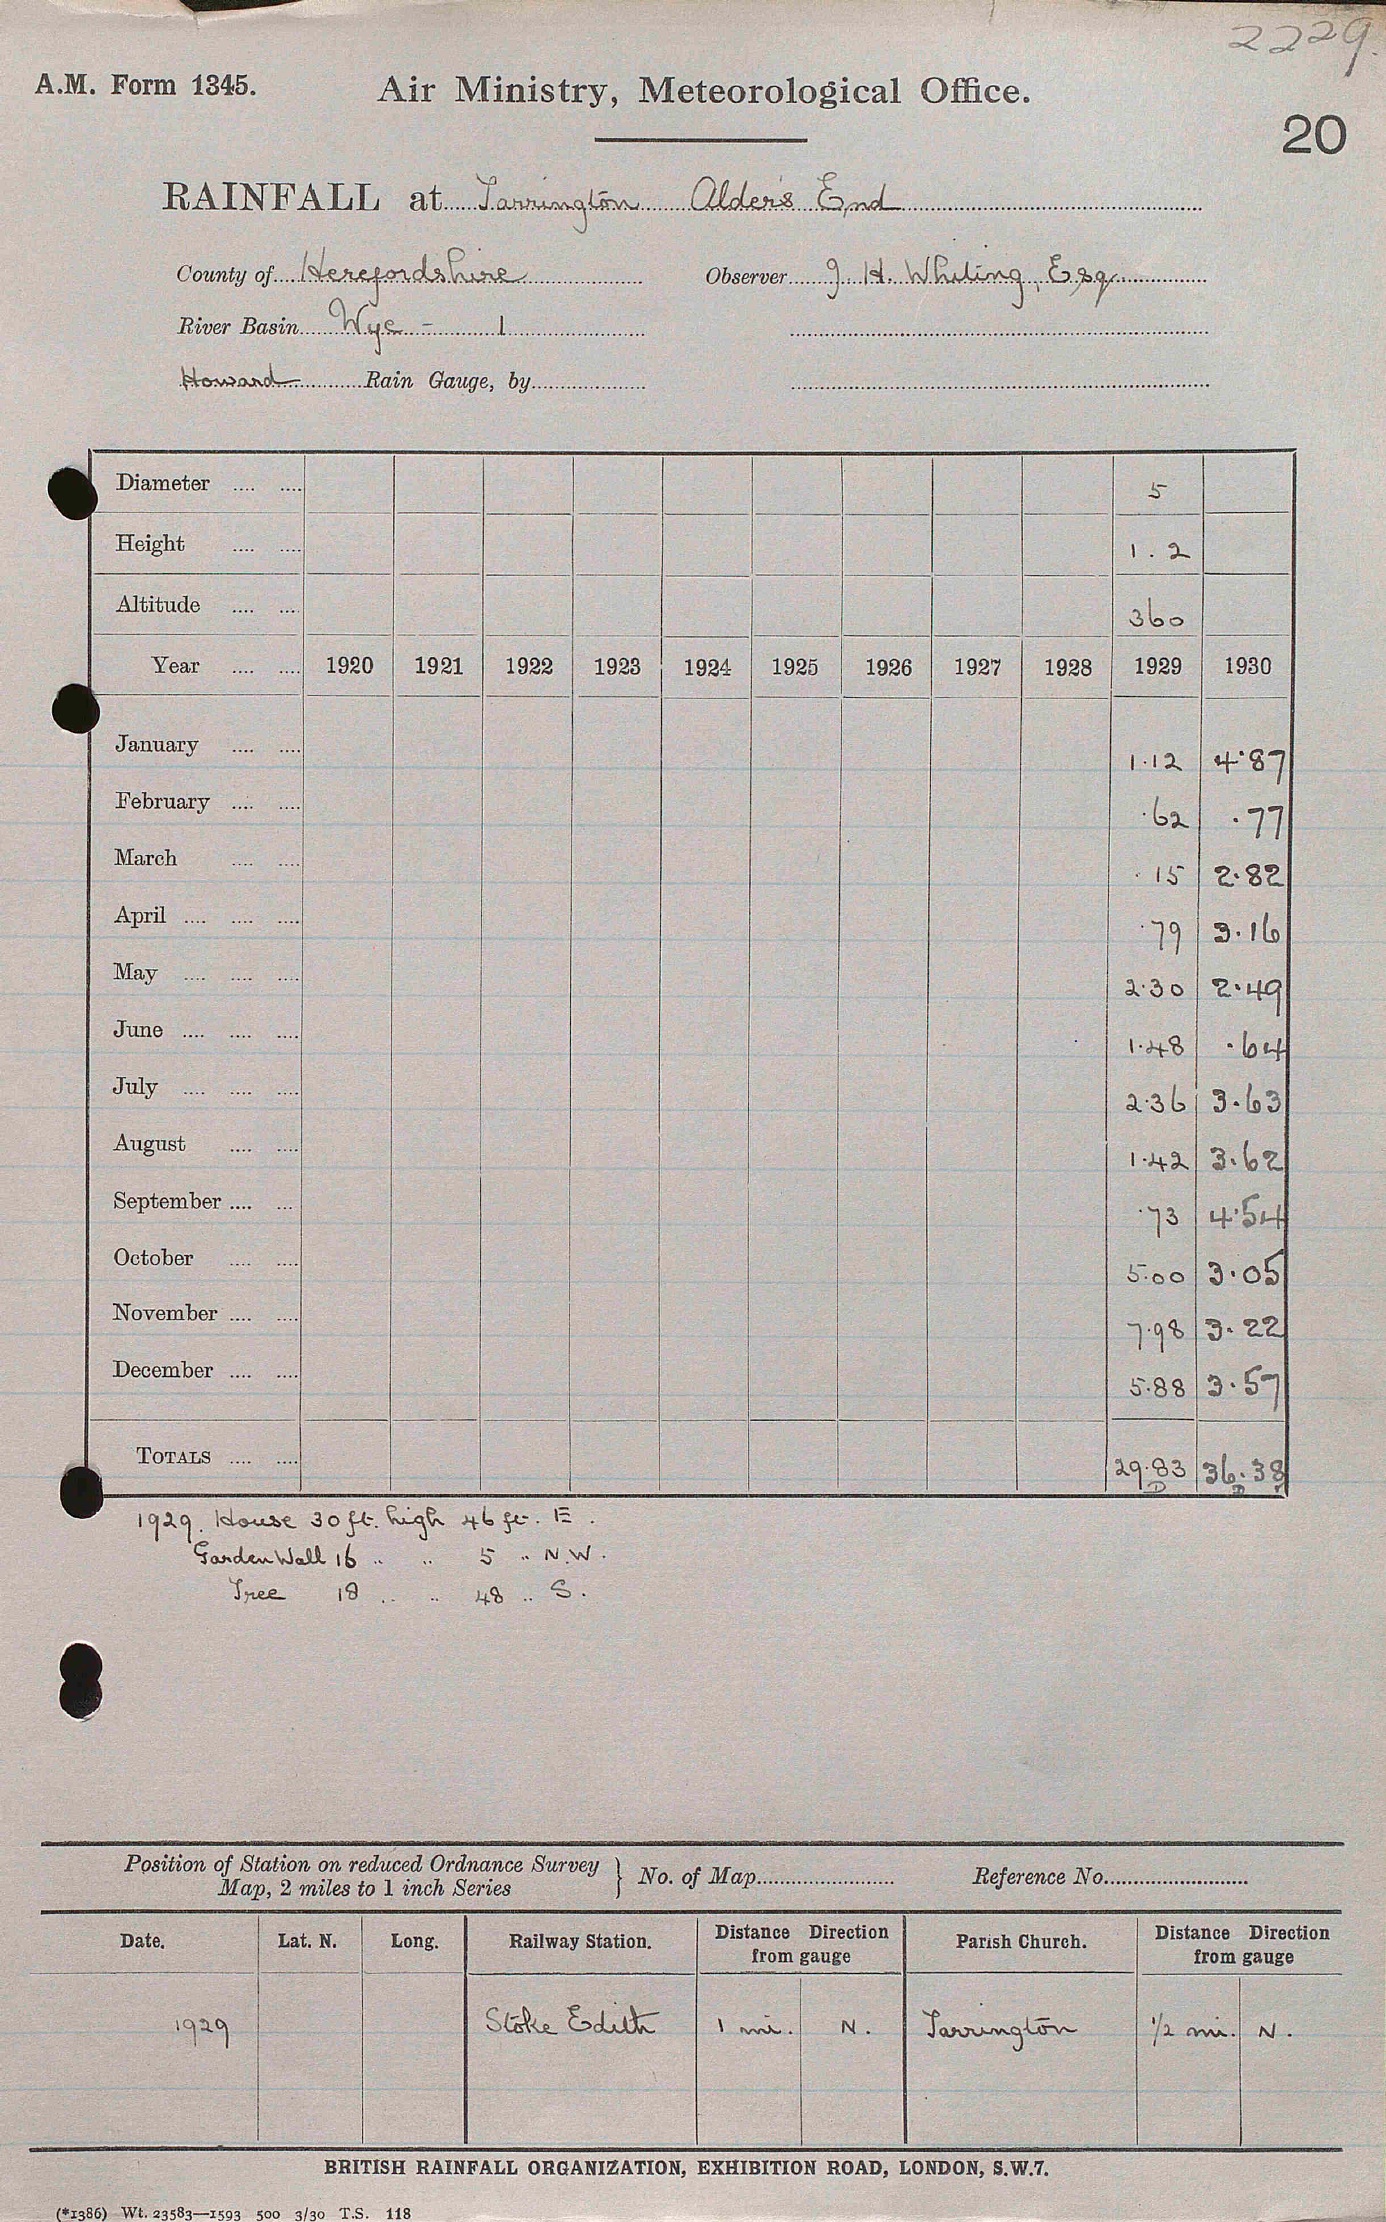 2229.
A.M. Form 1345. Air Ministry, Meteorological Office.
20
RAINFALL at Tarrington Alder's End
County of Herefordshire Observer J. H. Whiting, Esq.
River Basin Wye - 1
Howard Rain Gauge, by
Diameter .... .... 5
Height .... .... 1.2
Altitude .... .... 360
Year .... .... 1920 1921 1922 1923 1924 1925 1926 1927 1928 1929 1930
January .... .... 1·12 4·87
February .... .... ·62 ·77
March .... .... ·15 2·82
April .... .... .... ·79 3·16
May .... .... .... 2·30 2·49
June .... .... .... 1·48 ·64
July .... .... .... 2·36 3·63
August .... .... 1·42 3·62
September .... .... ·73 4·54
October .... .... 5·00 3·05
November .... .... 7·98 3·22
December .... .... 5·88 3·57
TOTALS .... .... 29·83 36·38
D D
1929. House 30 ft. high 46 ft. E.
Garden Wall 16 " " 5 " N.W.
Tree 18 " " 48 " S.
Position of Station on reduced Ordnance Survey
Map, 2 miles to 1 inch Series } No. of Map Reference No.
Date. Lat. N. Long. Railway Station. Distance Direction from gauge Parish Church. Distance Direction from gauge
1929 Stoke Edith 1 mi. N. Tarrington 1/2 mi. N.
BRITISH RAINFALL ORGANIZATION, EXHIBITION ROAD, LONDON, S.W.7.
(*1386) Wt. 23583—1593 500 3/30 T.S. 118